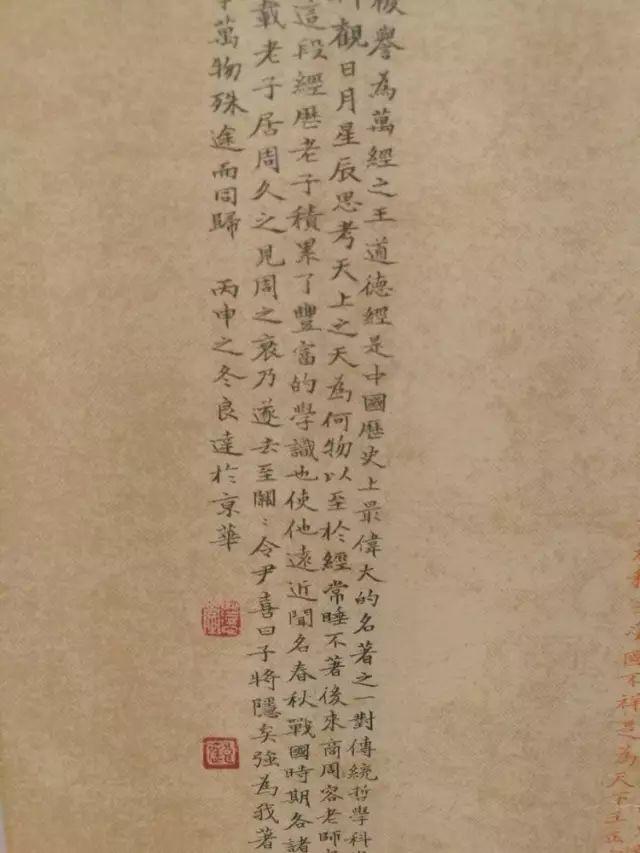 被譽為萬經之王道德經是中國歷史上最偉大的名著之一對傳統哲學科
觀日月星辰思考天上之天為何物以至於經常睡不著後來商周容老師
這段經歷老子積累了豐富的學識也使他遠近聞名春秋戰國時期各諸
載老子居周久之見周之衰乃遂去至關〻令尹喜曰子將隱矣強為我著
萬物殊途而同歸 丙申之冬良達於京華
國不祥是為天下王正